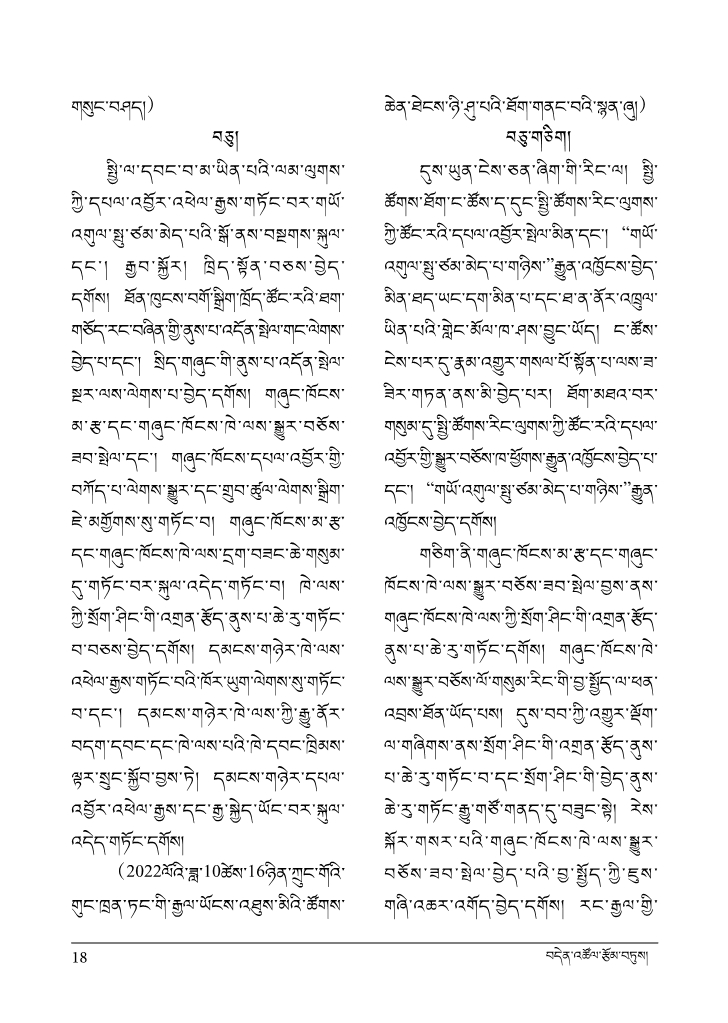 གསུང་བཤད།)
བཅུ།
སྤྱི་ལ་དབང་བ་མ་ཡིན་པའི་ལམ་ལུགས་
ཀྱི་དཔལ་འབྱོར་འཕེལ་རྒྱས་གཏོང་བར་གཡོ་
འགུལ་སྤུ་ཙམ་མེད་པའི་སྒོ་ནས་བསྔགས་སྐུལ་
དང་། རྒྱབ་སྐྱོར། ཁྲིད་སྟོན་བཅས་བྱེད་
དགོས། ཐོན་ཁུངས་བགོ་སྒྲིག་ཁྲོད་ཚོང་རའི་ཐག་
གཅོད་རང་བཞིན་གྱི་ནུས་པ་འདོན་སྤེལ་གང་ལེགས་
བྱེད་པ་དང་། སྲིད་གཞུང་གི་ནུས་པ་འདོན་སྤེལ་
སྔར་ལས་ལེགས་པ་བྱེད་དགོས། གཞུང་ཁོངས་
མ་རྩ་དང་གཞུང་ཁོངས་ཁེ་ལས་སྒྱུར་བཅོས་
ཟབ་སྤེལ་དང་། གཞུང་ཁོངས་དཔལ་འབྱོར་གྱི་
བཀོད་པ་ལེགས་སྒྱུར་དང་གྲུབ་ཚུལ་ལེགས་སྒྲིག་
ཇེ་མགྱོགས་སུ་གཏོང་བ། གཞུང་ཁོངས་མ་རྩ་
དང་གཞུང་ཁོངས་ཁེ་ལས་དྲག་བཟང་ཆེ་གསུམ་
དུ་གཏོང་བར་སྐུལ་འདེད་གཏོང་བ། ཁེ་ལས་
ཀྱི་སྲོག་ཤིང་གི་འགྲན་རྩོད་ནུས་པ་ཆེ་རུ་གཏོང་
བ་བཅས་བྱེད་དགོས། དམངས་གཉེར་ཁེ་ལས་
འཕེལ་རྒྱས་གཏོང་བའི་ཁོར་ཡུག་ལེགས་སུ་གཏོང་
བ་དང་། དམངས་གཉེར་ཁེ་ལས་ཀྱི་རྒྱུ་ནོར་
བདག་དབང་དང་ཁེ་ལས་པའི་ཁེ་དབང་ཁྲིམས་
ལྟར་སྲུང་སྐྱོབ་བྱས་ཏེ། དམངས་གཉེར་དཔལ་
འབྱོར་འཕེལ་རྒྱས་དང་རྒྱ་སྐྱེད་ཡོང་བར་སྐུལ་
འདེད་གཏོང་དགོས།
(2022ལོའི་ཟླ་10ཚེས་16ཉིན་ཀྲུང་གོའི་
གུང་ཁྲན་ཏང་གི་རྒྱལ་ཡོངས་འཐུས་མིའི་ཚོགས་
ཆེན་ཐེངས་ཉི་ཤུ་པའི་ཐོག་གནང་བའི་སྙན་ཞུ།)
བཅུ་གཅིག།
དུས་ཡུན་ངེས་ཅན་ཞིག་གི་རིང་ལ། སྤྱི་
ཚོགས་ཐོག་ང་ཚོས་ད་དུང་སྤྱི་ཚོགས་རིང་ལུགས་
ཀྱི་ཚོང་རའི་དཔལ་འབྱོར་སྤེལ་མིན་དང་། “གཡོ་
འགུལ་སྤུ་ཙམ་མེད་པ་གཉིས་”རྒྱུན་འཁྱོངས་བྱེད་
མིན་ཐད་ཡང་དག་མིན་པ་དང་ཐ་ན་ནོར་འཁྲུལ་
ཡིན་པའི་གླེང་མོལ་ཁ་ཤས་བྱུང་ཡོད། ང་ཚོས་
ངེས་པར་དུ་རྣམ་འགྱུར་གསལ་པོ་སྟོན་པ་ལས་ཟ་
ཟིར་གཏན་ནས་མི་བྱེད་པར། ཐོག་མཐའ་བར་
གསུམ་དུ་སྤྱི་ཚོགས་རིང་ལུགས་ཀྱི་ཚོང་རའི་དཔལ་
འབྱོར་གྱི་སྒྱུར་བཅོས་ཁ་ཕྱོགས་རྒྱུན་འཁྱོངས་བྱེད་པ་
དང་། “གཡོ་འགུལ་སྤུ་ཙམ་མེད་པ་གཉིས་”རྒྱུན་
འཁྱོངས་བྱེད་དགོས།
གཅིག་ནི་གཞུང་ཁོངས་མ་རྩ་དང་གཞུང་
ཁོངས་ཁེ་ལས་སྒྱུར་བཅོས་ཟབ་སྤེལ་བྱས་ནས་
གཞུང་ཁོངས་ཁེ་ལས་ཀྱི་སྲོག་ཤིང་གི་འགྲན་རྩོད་
ནུས་པ་ཆེ་རུ་གཏོང་དགོས། གཞུང་ཁོངས་ཁེ་
ལས་སྒྱུར་བཅོས་ལོ་གསུམ་རིང་གི་བྱ་སྤྱོད་ལ་ཕན་
འབྲས་ཐོན་ཡོད་པས། དུས་བབ་ཀྱི་འགྱུར་ལྡོག་
ལ་གཞིགས་ནས་སྲོག་ཤིང་གི་འགྲན་རྩོད་ནུས་
པ་ཆེ་རུ་གཏོང་བ་དང་སྲོག་ཤིང་གི་བྱེད་ནུས་
ཆེ་རུ་གཏོང་རྒྱུ་གཙོ་གནད་དུ་བཟུང་སྟེ། རེས་
སྐོར་གསར་པའི་གཞུང་ཁོངས་ཁེ་ལས་སྒྱུར་
བཅོས་ཟབ་སྤེལ་བྱེད་པའི་བྱ་སྤྱོད་ཀྱི་ཇུས་
གཞི་འཆར་འགོད་བྱེད་དགོས། རང་རྒྱལ་གྱི་
18
བདེན་འཚོལ་རྩོམ་བཏུས།